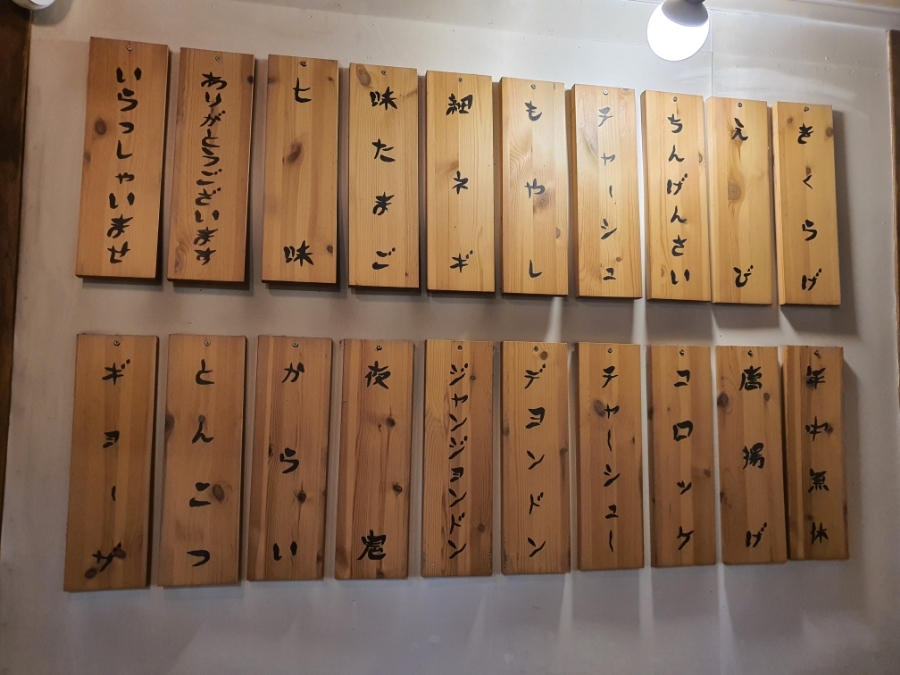 いらっしゃいませ
ありがとうございます
七味
味たまご
細ネギ
もやし
チャーシュ
ちんげんさい
えび
きくらげ
ギョーザ
とんこつ
からい
ジャンジョンドン
デヨンドン
チャーシュー
コロッケ
唐揚げ
年中無休